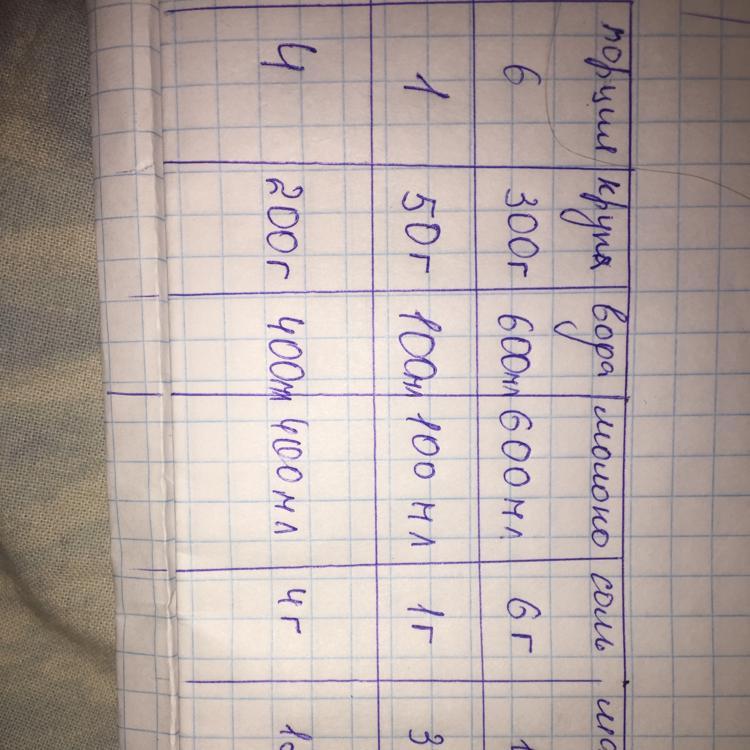 порция крупа вода молоко соль
6 300г 600мл 600мл 6г
1 50г 100мл 100мл 1г 3
4 200г 400мл 400мл 4г